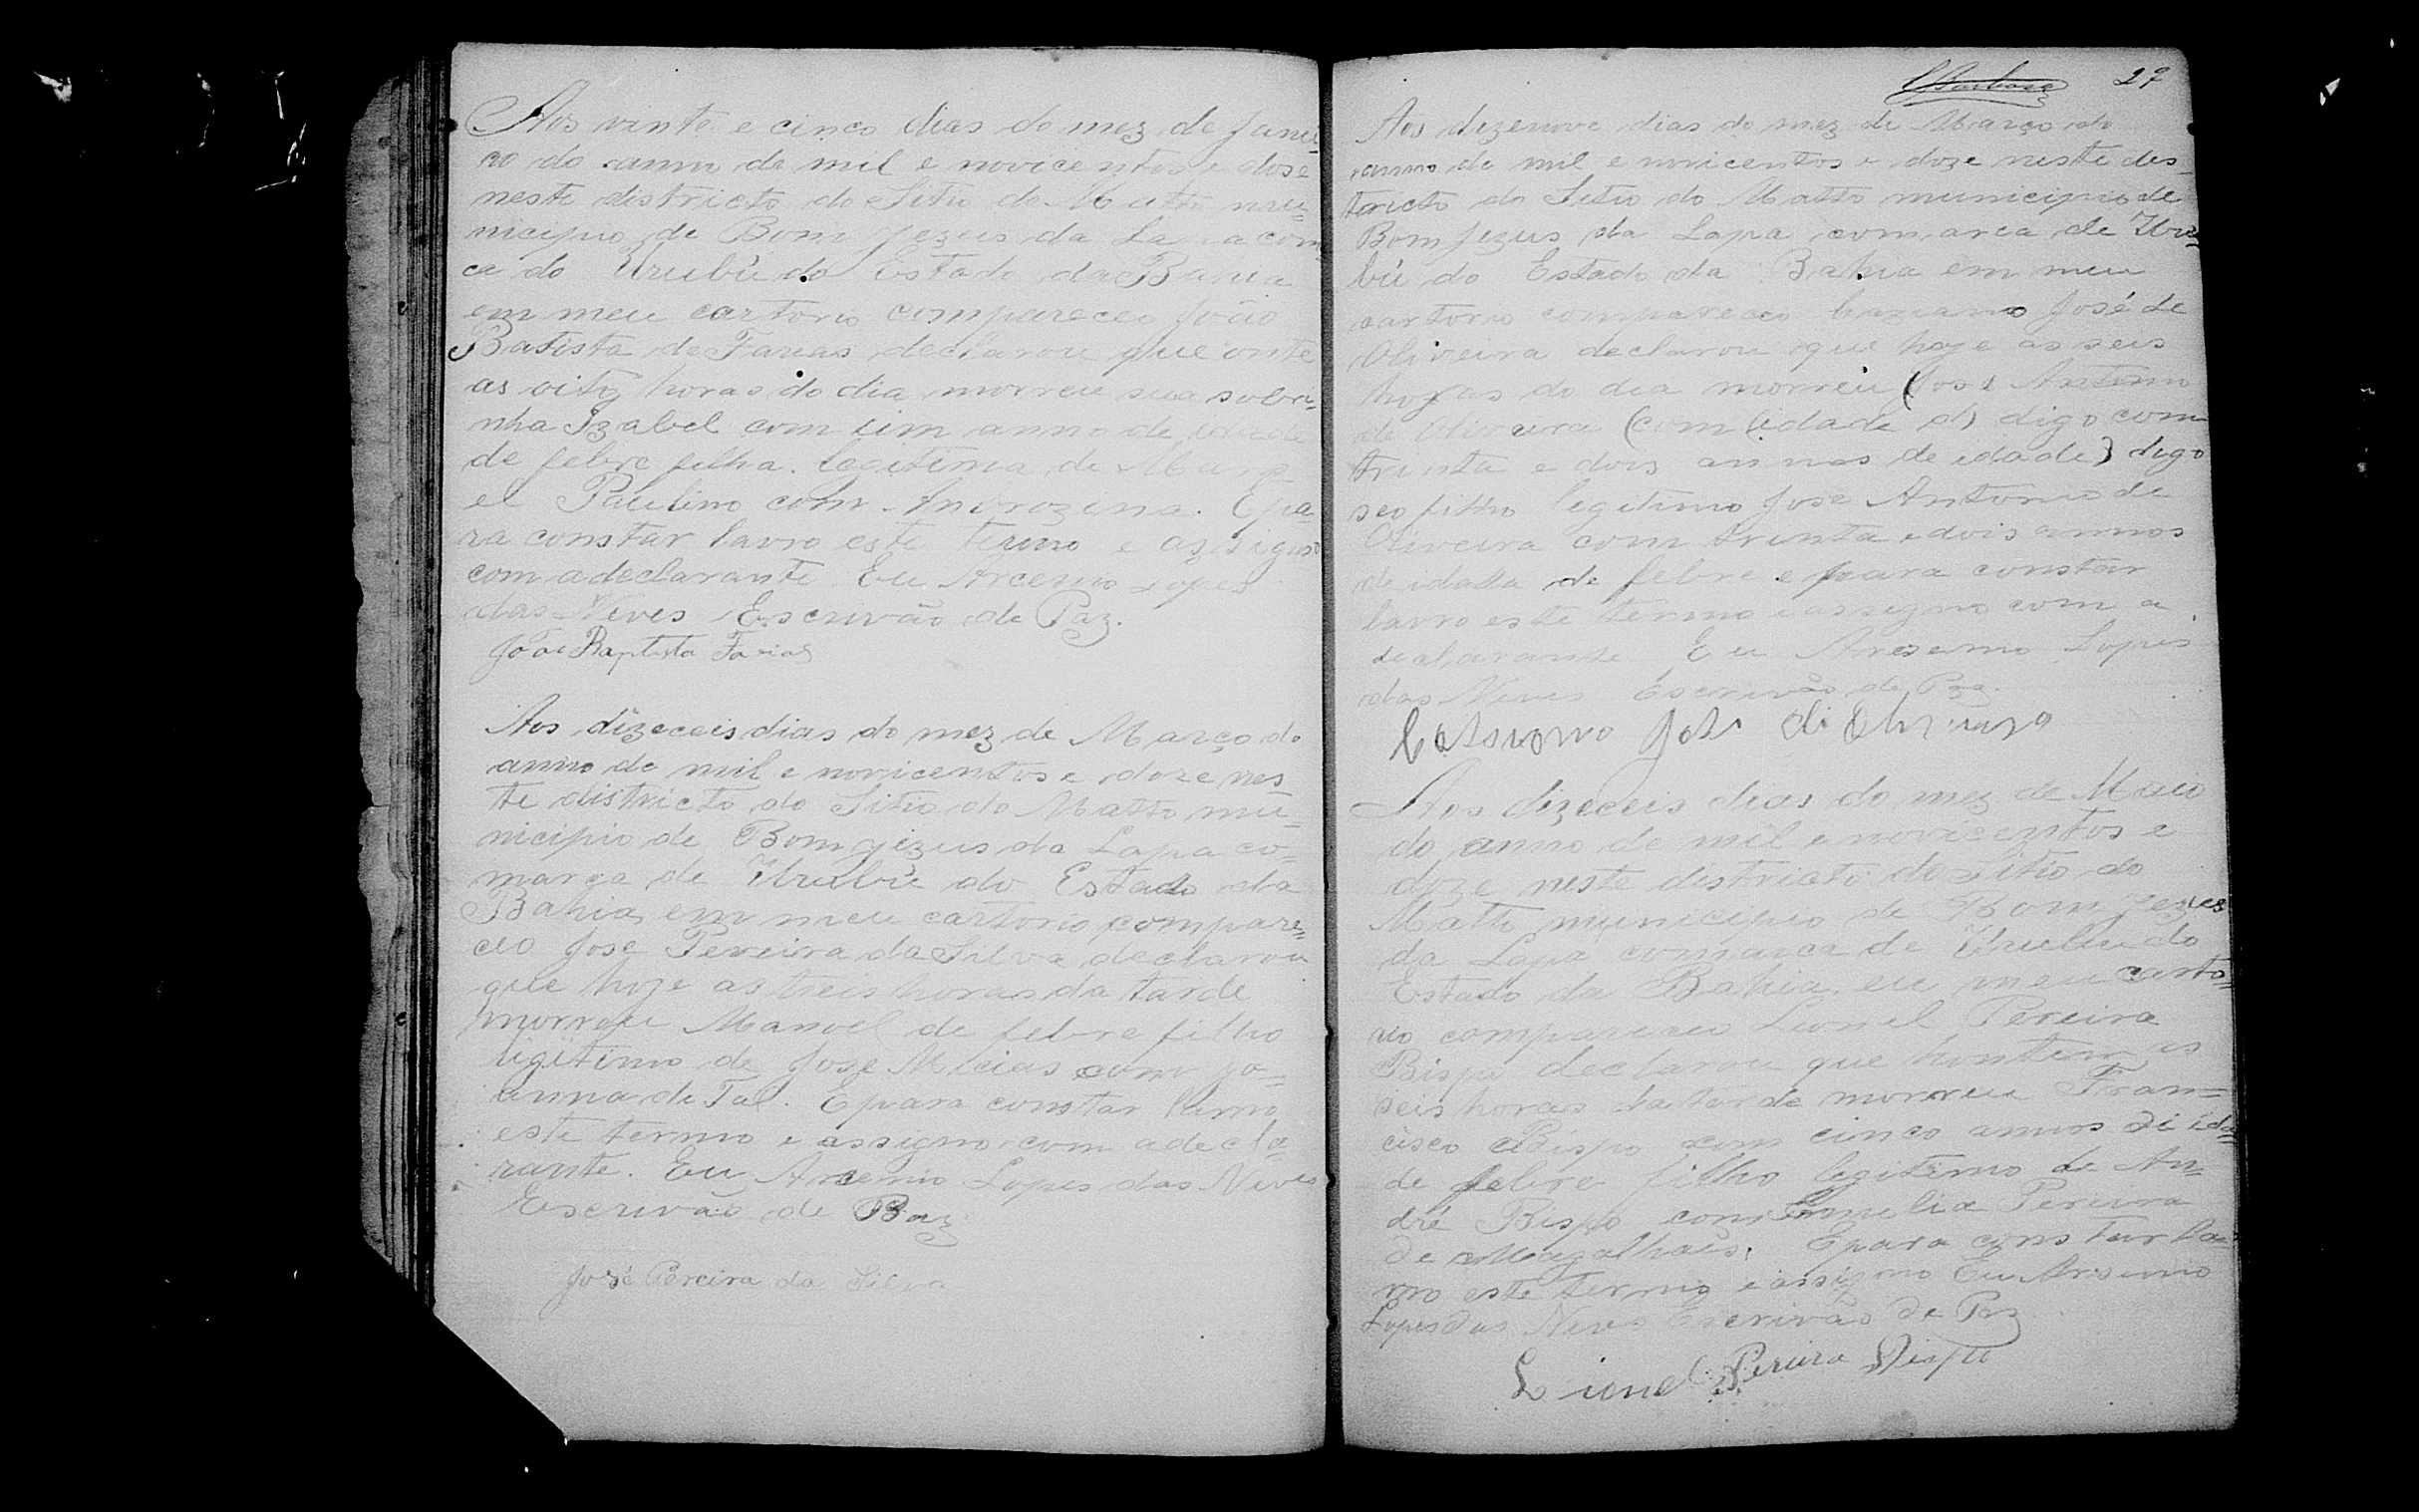 Aos vinte e cinco dias do mez de Janei=
ro do anno de mil e novicentos e dose
neste districto do Sitio do Matto mu=
nicipio de Bom Jezus da Lapa com
ca do Urubú do Estado da Bahia
em meu cartorio compareceo João
Batista de Farias declarou que onte
as oito horas do dia morreu sua sobri=
nha Izabel com um anno de
de febre filha legitima de
el Paulino com Ambrozina. E pa
ra constar lavro este termo e assigno
com a declarante Eu Arcenio Lopes
das Neves Escrivão de Paz.
João Baptista Farias
Aos dizeceis dias do mez de Março do
anno de mil e novicentos e doze nes
te districto do Sitio do Matto mu=
nicipio de Bom jezus da Lapa co=
marca de Urubú do Estado da
Bahia em meu cartorio compare=
ceo Jose Pereira da Silva declarou
que hoje as treis horas da tarde
morreu Manoel de febre filho
ligitimo de Jose Micias com jo=
anna de Tal. E para constar lavro
este termo e assigno com a decla=
rante. Eu Arcenio Lopes das Neves
Escrivão de Paz
José Pereira da Silva
Barbosa 27
Aos dezenove dias do mez de Março do
anno de mil e novicentos e doze neste des=
tericto do Sitio do Matto municipio de
Bom Jezus da Lapa comarca de Uru=
bú do Estado da Bahia em meu
cartorio compareceo José de
Oliveira declarou que hoje as seis
horas do dia morreu (Jose Antonio
de Oliveira (com idade d) digo com
trinta e dois annos de idade) digo
seo filho legitimo Jose Antonio de
Oliveira com trinta e dois annos
de idade de febre e para constar
lavro este termo e assigno com a
declarante Eu Arsenio Lopes
das Neves Escrivão de Paz.
José di
Aos dizeceis dias do mez de Maio
do anno de mil e novicentos e
doze neste districto do Sitio do
Matto municipio de Bom Jezus
da Lapa comarca de Urubu do
Estado da Bahia eu meu carto=
rio compareceo Lionel Pereira
Bispo declarou que hontem as
seis horas da tarde morreu Fran=
cisco Bispo com cinco annos di ida=
de febre filho legitimo de An=
dré Bispo com Emmelia Pereira
de Magalhais. E para constar la=
vro este termo e assigno Eu Arsenio
Lopes das Neves Escrivão de Paz
Lionel Pereira Bispo